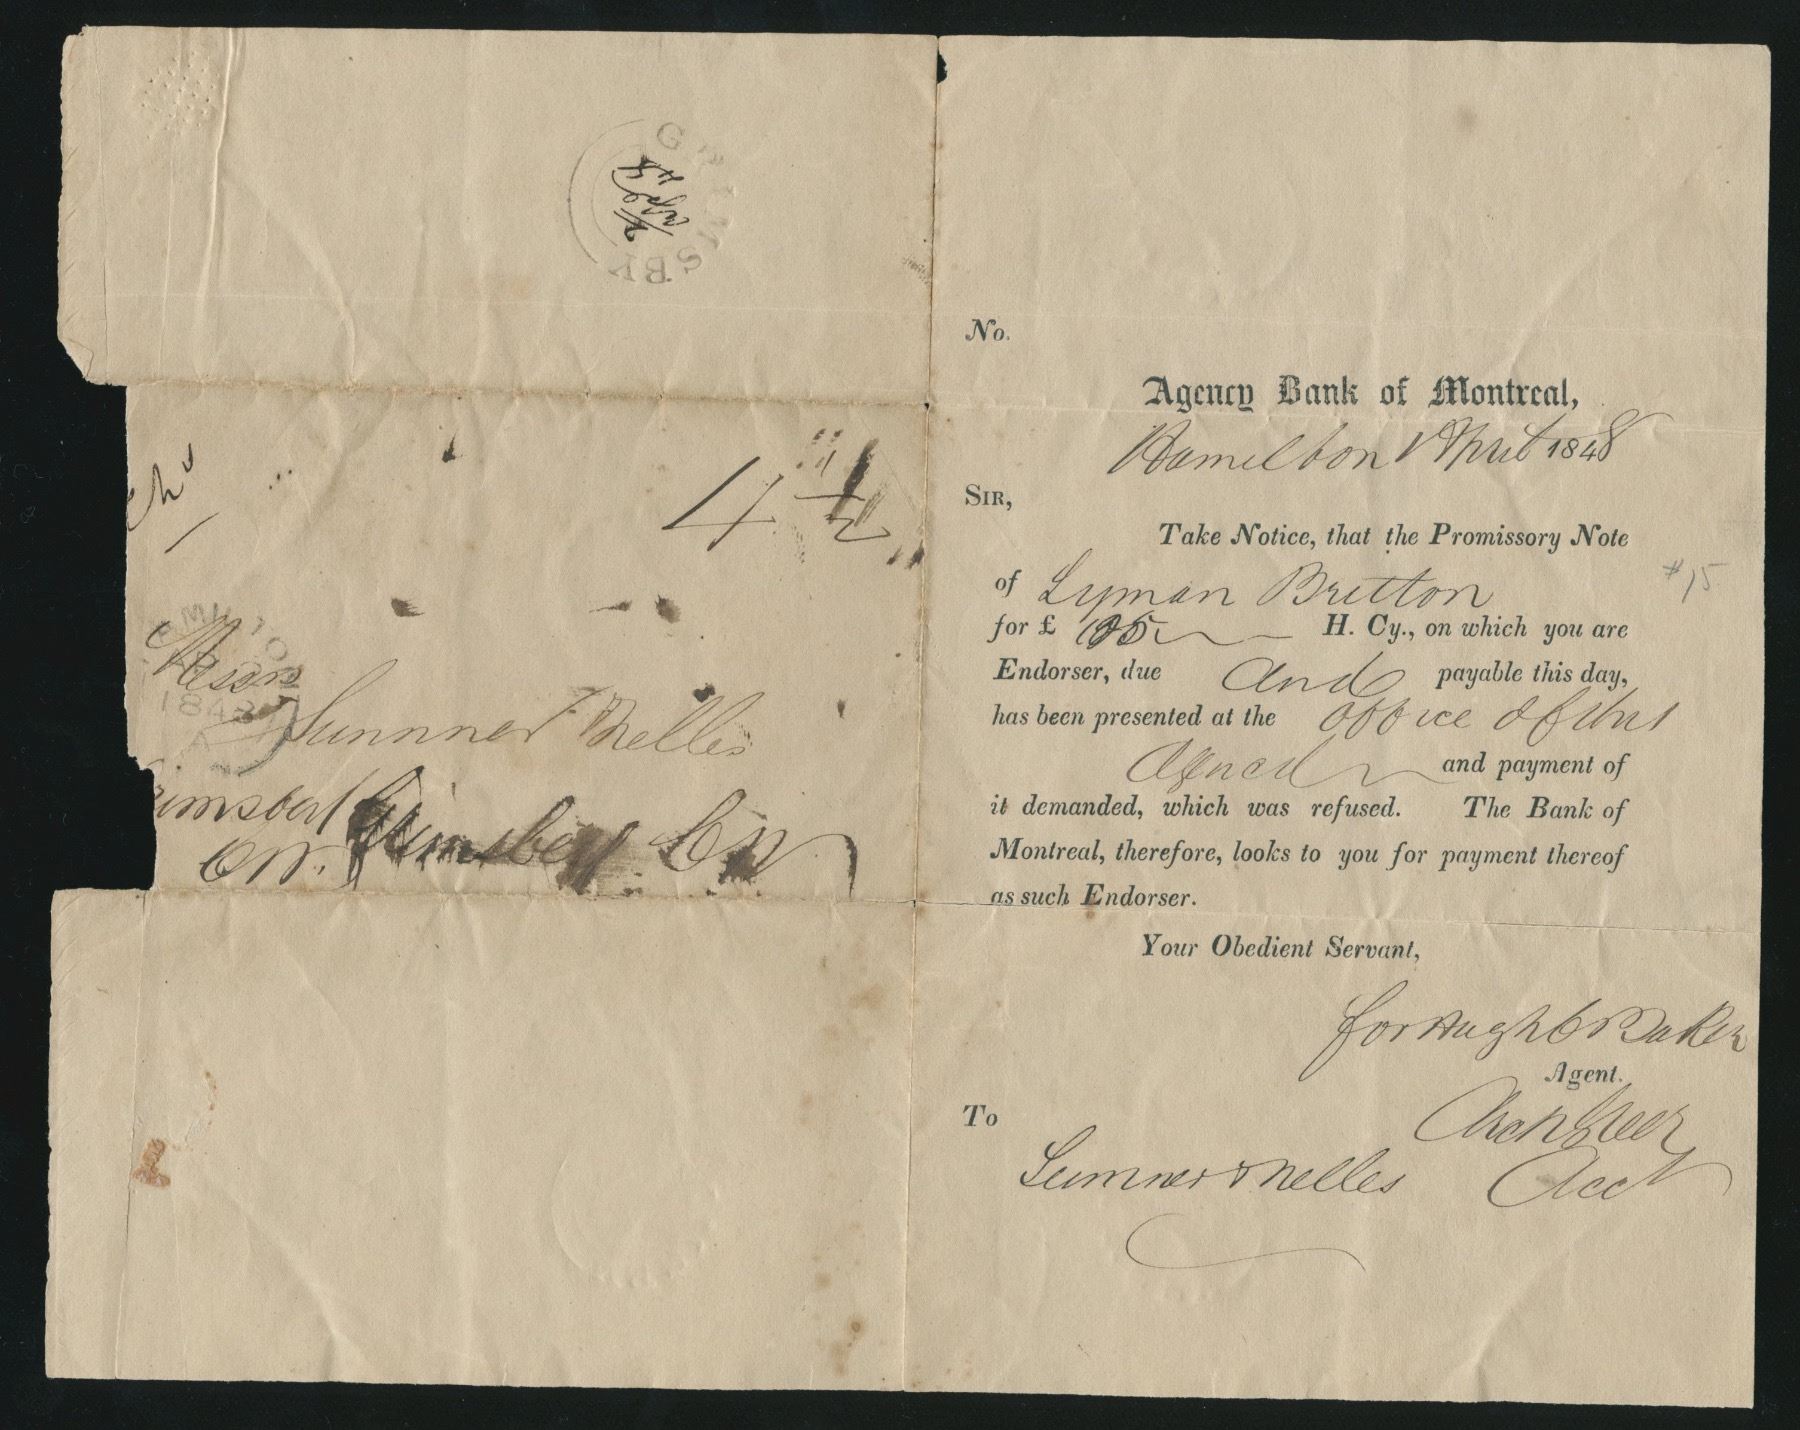 GRIMSBY
4 1/2
HAMILTON
1848
Messrs
Sumner Nelles
Grimsby C W
C W.
No.
Agency Bank of Montreal,
Hamilton 1 April 1848
SIR,
Take Notice, that the Promissory Note
of Lyman Britton
for £ H. Cy., on which you are
Endorser, due and payable this day,
has been presented at the office of this
Agency and payment of
it demanded, which was refused. The Bank of
Montreal, therefore, looks to you for payment thereof
as such Endorser.
Your Obedient Servant,
for Hugh C Baker
Agent.
Arch Greer
Acct
To
Sumner & Nelles
#15